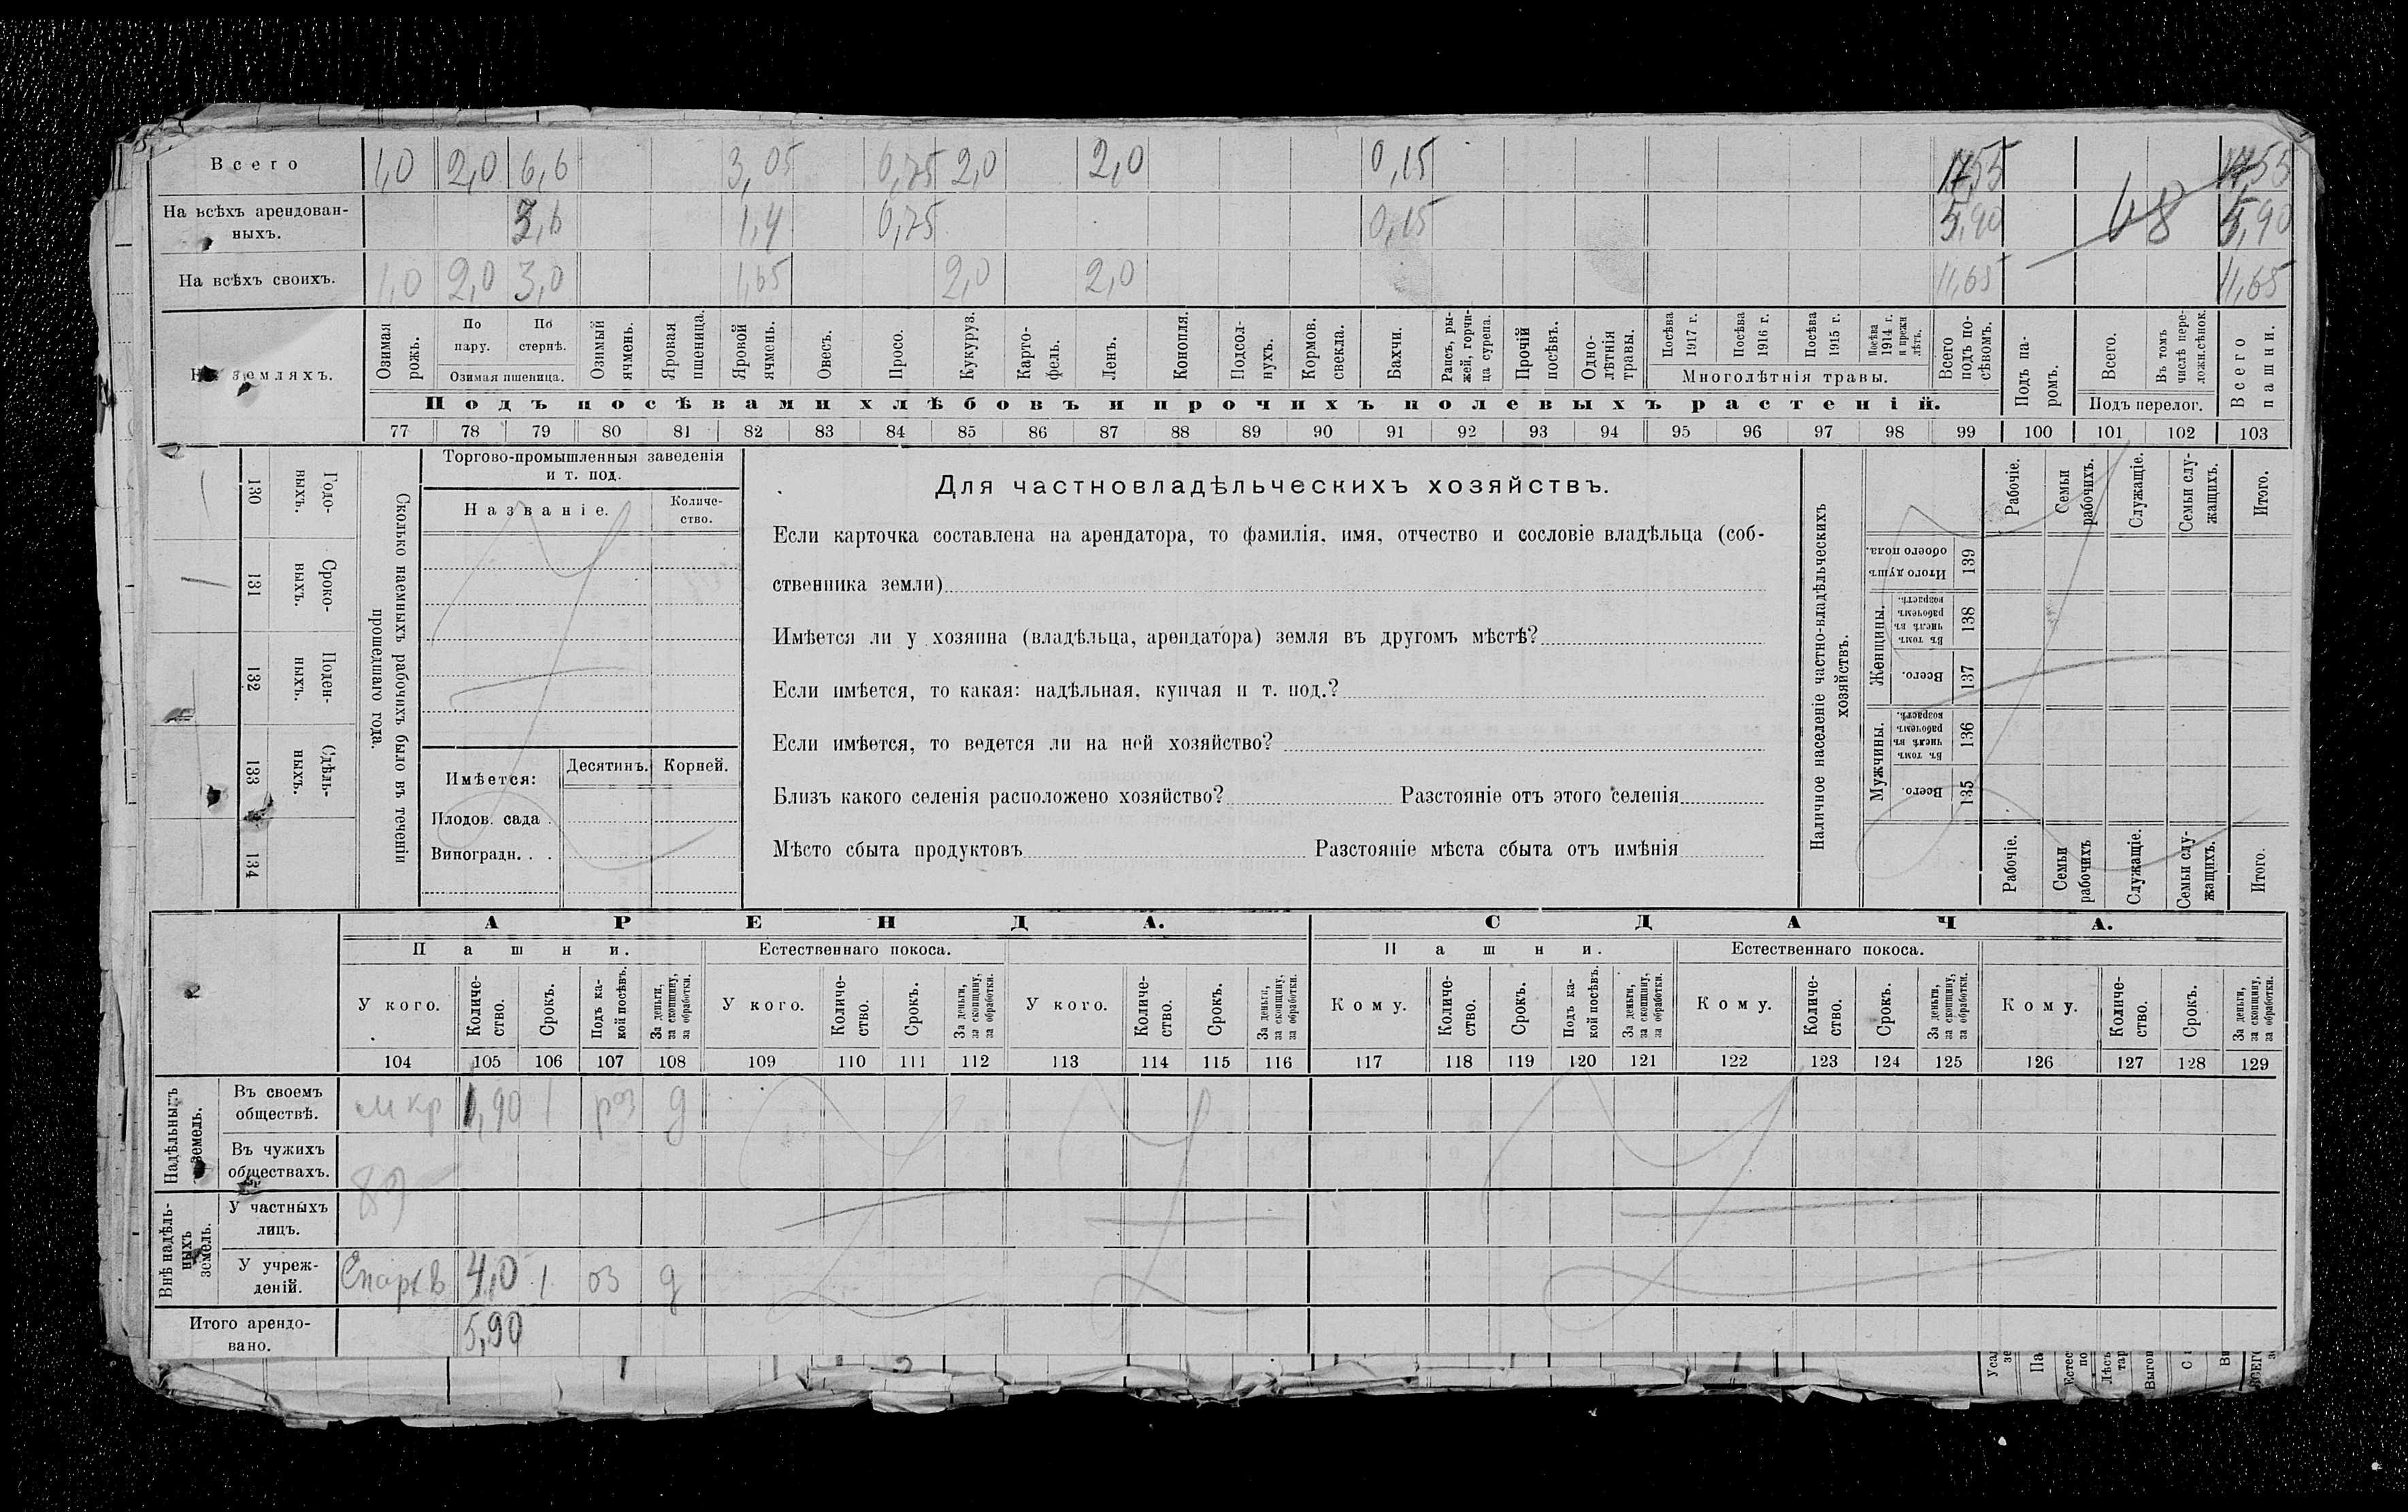 Всего 1,0 2,0 6,6 3,05 0,75 2,0 2,0 0,15 17,55 17,55
На всѣхъ арендован-
ныхъ. 3,6 1,4 0,75 0,15 5,90 68 5,90
На всѣхъ своихъ. 1,0 2,0 3,0 1,65 2,0 2,0 11,65 11,65
На земляхъ.
Озимая рожь.
По пару.
По стернѣ.
Озимая пшеница.
Озимый ячмень.
Яровая пшеница.
Яровой ячмень.
Овесъ.
Просо.
Кукуруз.
Карто-
фель.
Ленъ.
Конопля.
Подсол-
нухъ.
Кормов.
свекла.
Бахчи.
Рапсъ, ры-
жей, горчи-
ца сурепа.
Прочій
посѣвъ.
Одно-
лѣтнія
травы.
Посѣва
1917 г.
Посѣва
1916 г.
Посѣва
1915 г.
Посѣва
1914 г.
и прежн
лѣтъ.
Многолѣтнія травы.
Всего
подъ по-
сѣвомъ.
Подъ па-
ромъ.
Всего.
Въ томъ
числѣ пере-
ложн.сѣнок.
Подъ перелог.
Всего
пашни.
Подъ посѣвами хлѣбовъ и прочихъ полевыхъ растеній.
77 78 79 80 81 82 83 84 85 86 87 88 89 90 91 92 93 94 95 96 97 98 99 100 101 102 103
Годо-
ныхъ.
130
Сроко-
ныхъ.
131
Поден-
ныхъ.
132
Сдѣль-
ныхъ.
133
134
Сколько наемныхъ рабочихъ было въ теченіи
прошедшаго года.
Торгово-промышленныя заведенія
и т. под.
Названіе.
Количе-
ство.
Имѣется:
Десятинъ.
Корней.
Плодов. сада .
Виноградн. . .
Для частновладѣльческихъ хозяйствъ.
Если карточка составлена на арендатора, то фамилія, имя, отчество и сословіе владѣльца (соб-
ственника земли)
Имѣется ли у хозяина (владѣльца, арендатора) земля въ другомъ мѣстѣ?
Если имѣется, то какая: надѣльная, купчая и т. под.?
Если имѣется, то ведется ли на ней хозяйство?
Близъ какого селенія расположено хозяйство? Разстояніе отъ этого селенія
Мѣсто сбыта продуктовъ Разстояніе мѣста сбыта отъ имѣнія
Наличное населеніе частно-владѣльческихъ
хозяйствъ.
Рабочіе.
Семьи
рабочихъ.
Служащіе.
Семьи слу-
жащихъ.
Итого.
Итого душъ
обоего пола.
139
Женщины.
Въ томъ
числѣ въ
рабочемъ
возрастѣ.
138
Всего.
137
Мужчины.
Въ томъ
числѣ въ
рабочемъ
возрастѣ.
136
Всего.
135
Рабочіе.
Семьи
рабочихъ
Служащіе.
Семьи слу-
жащихъ.
Итого.
АРЕНДА. СДАЧА.
Пашни. Естественнаго покоса. Пашни. Естественнаго покоса.
У кого.
Количе-
ство.
Срокъ.
Подъ ка-
кой посѣвъ.
За деньги,
за скопщину,
за обработки.
У кого.
Количе-
ство.
Срокъ.
За деньги,
за скопщину,
за обработки.
У кого.
Количе-
ство.
Срокъ.
За деньги,
за скопщину,
за обработки.
Кому.
Количе-
ство.
Срокъ.
Подъ ка-
кой посѣвъ.
За деньги,
за скопщину,
за обработки.
Кому.
Количе-
ство.
Срокъ.
За деньги,
за скопщину,
за обработки.
Кому.
Количе-
ство.
Срокъ.
За деньги,
за скопщину,
за обработки.
104 105 106 107 108 109 110 111 112 113 114 115 116 117 118 119 120 121 122 123 124 125 126 127 128 129
Надѣльныхъ
земель.
Въ своемъ
обществѣ. м кр 1,90 1 роз д
Въ чужихъ
обществахъ.
89
Внѣ надѣль-
ныхъ
земель.
У частныхъ
лицъ.
У учреж-
деній. 4,0 1 оз д
Итого арендо-
вано. 5,90